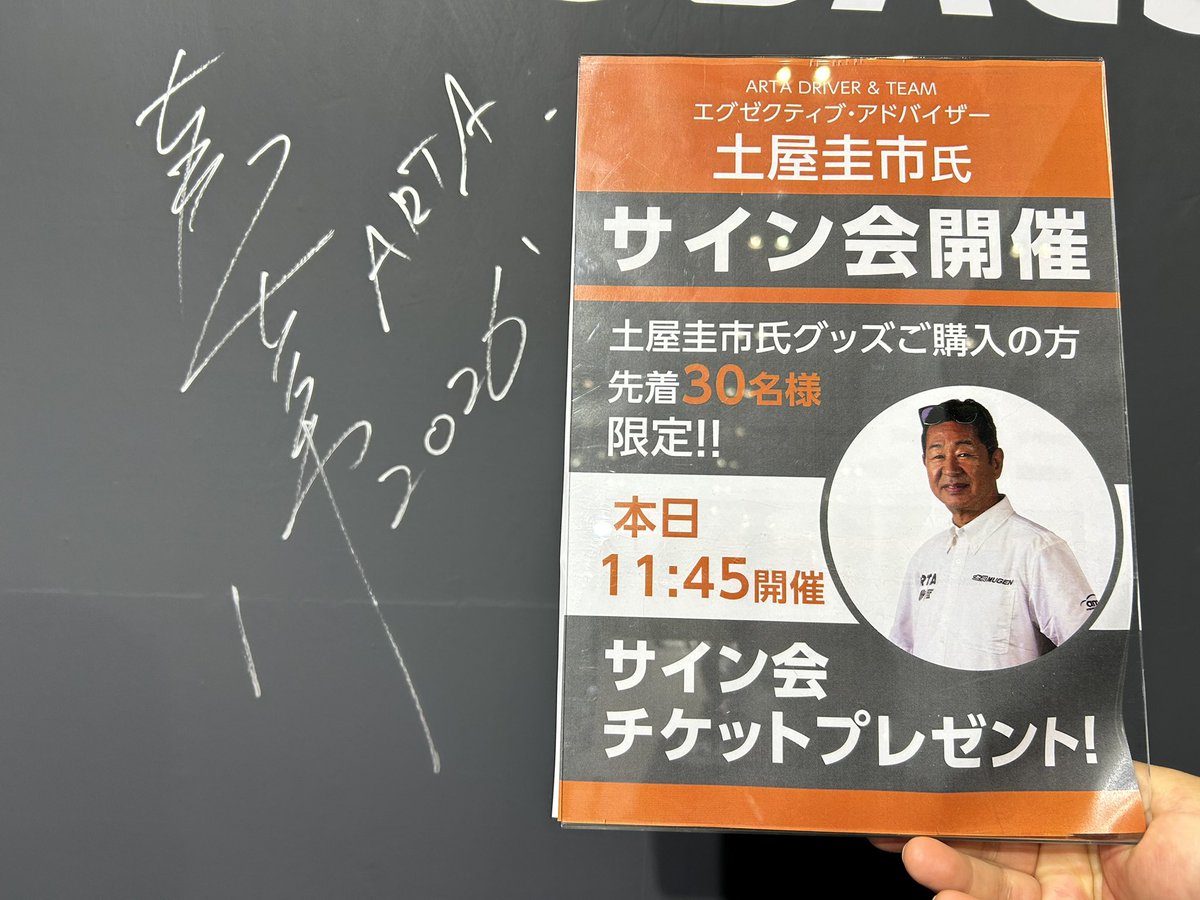 ARTA.
2026.
ARTA DRIVER & TEAM
エグゼクティブ・アドバイザー
土屋圭市氏
サイン会開催
土屋圭市氏グッズご購入の方
先着30名様
限定!!
本日
11:45開催
サイン会
チケットプレゼント!
ARTA
MUGEN